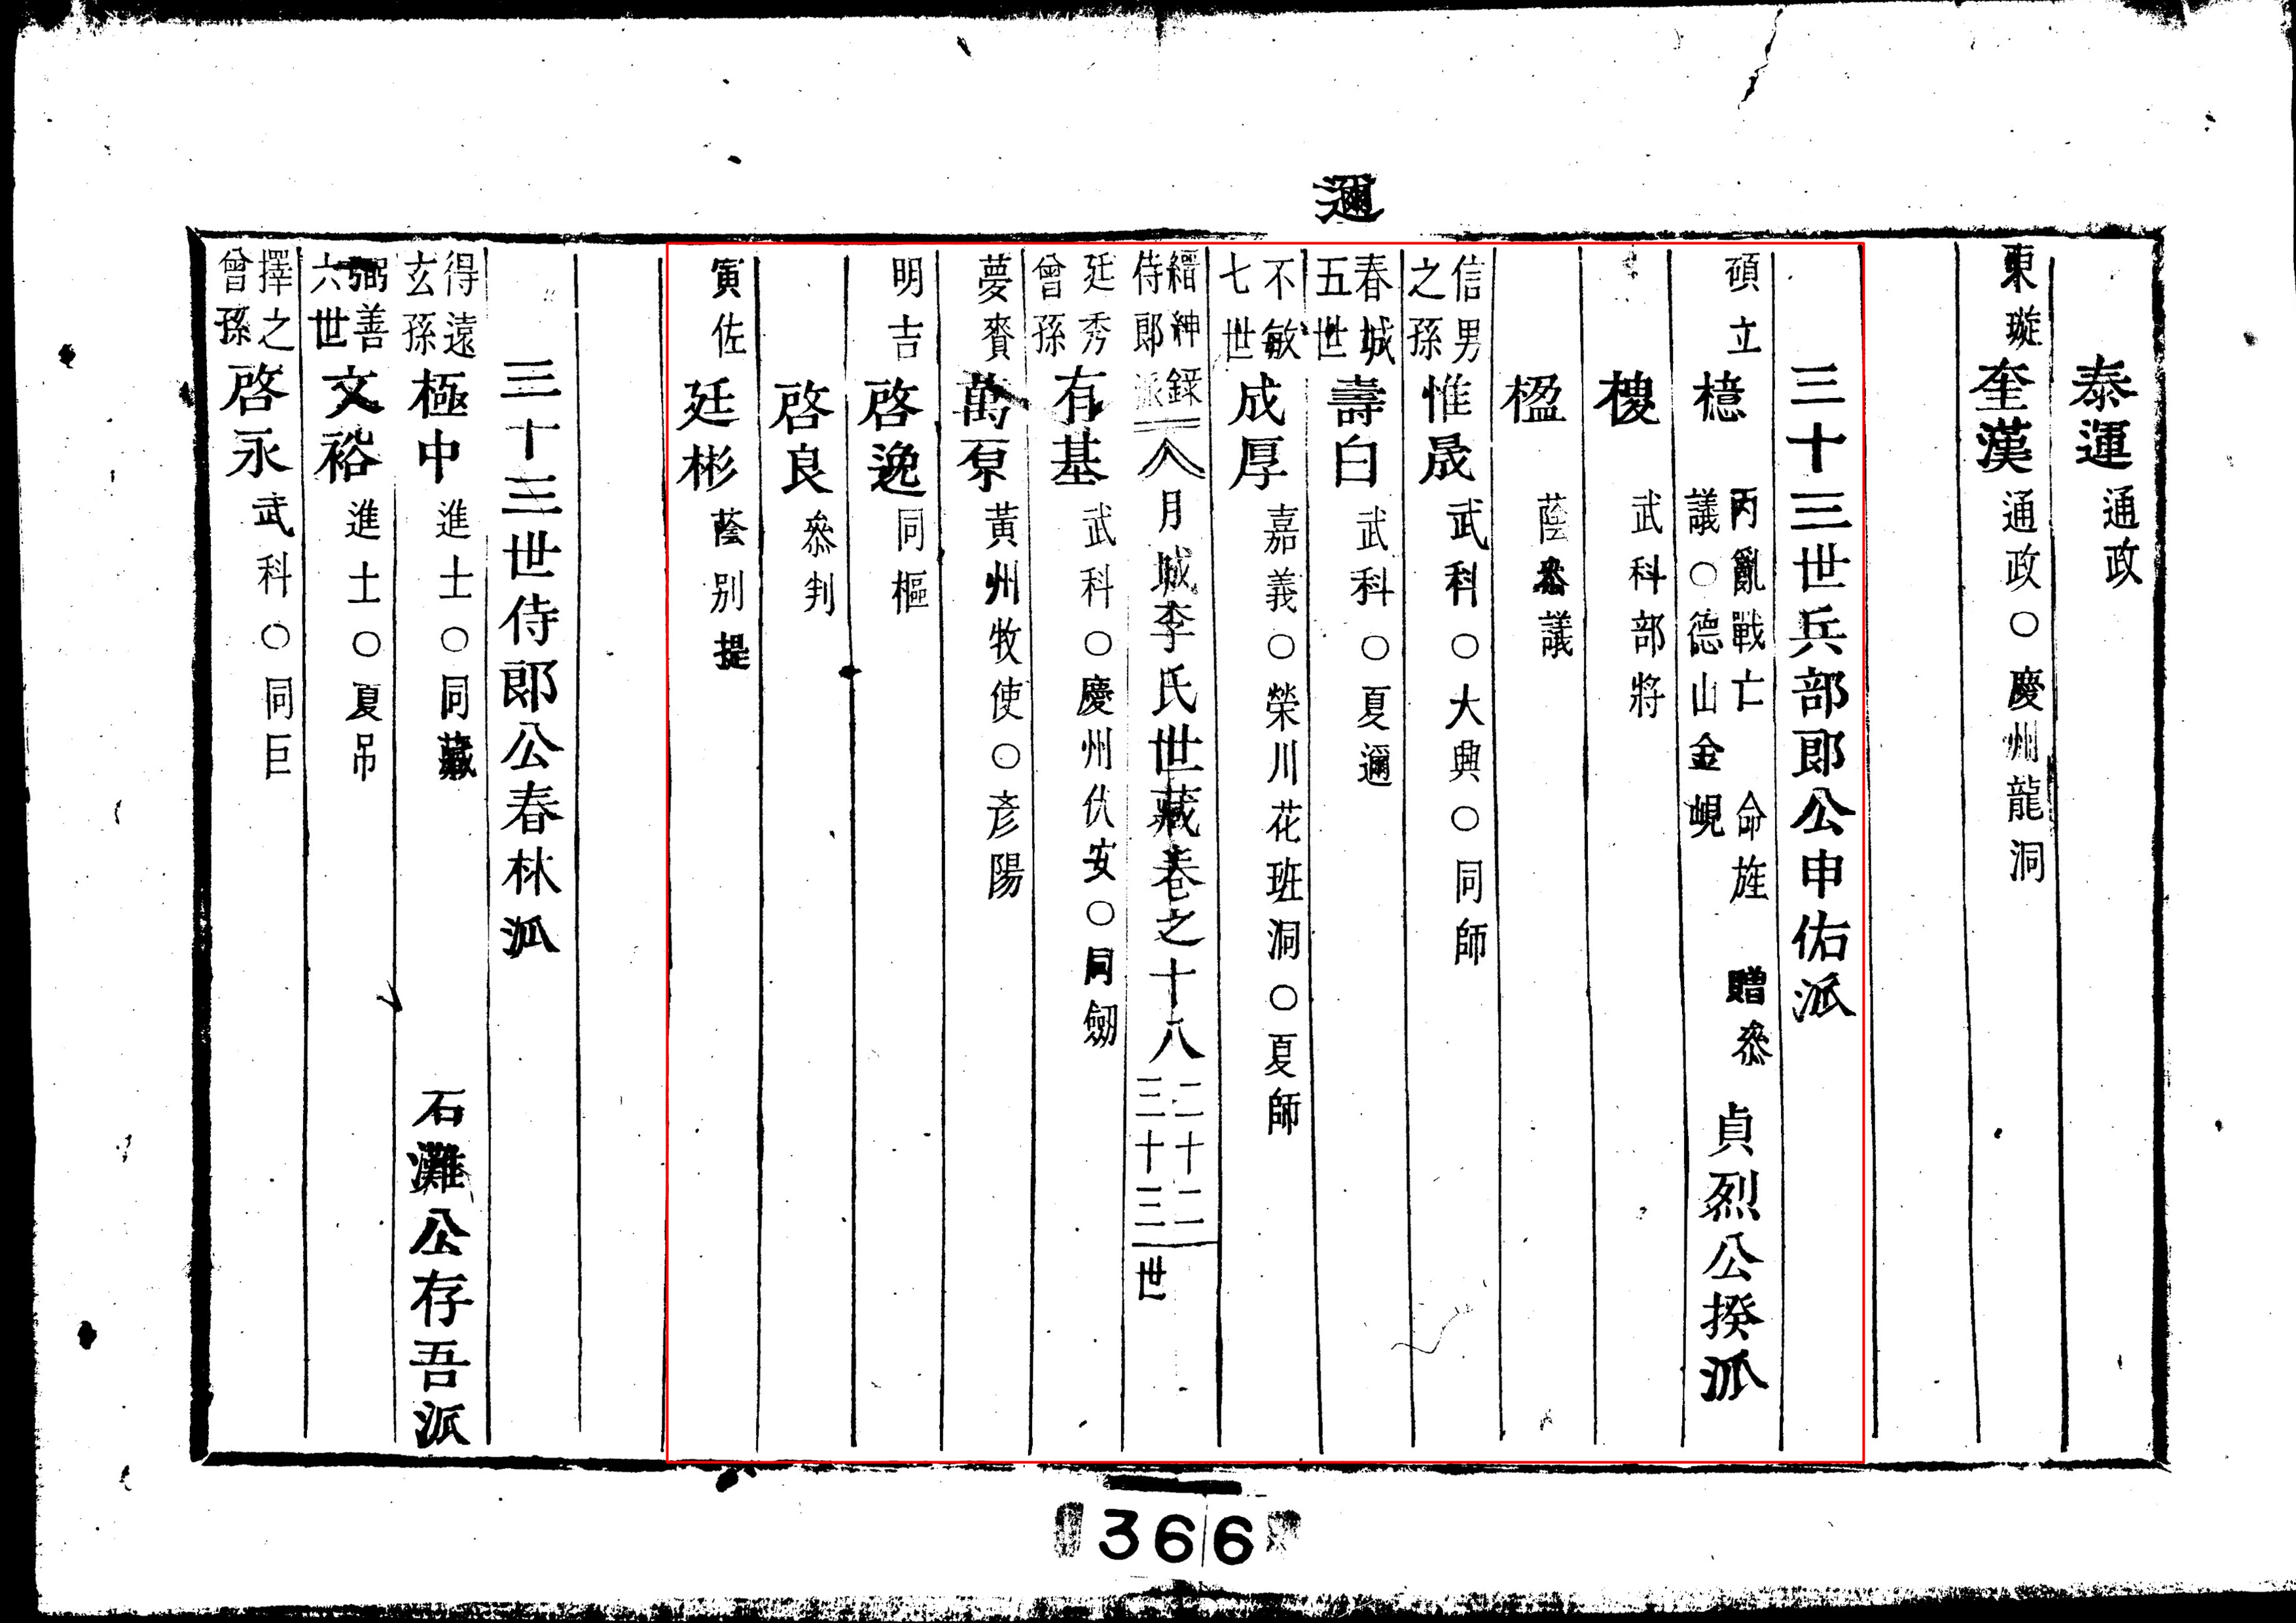 邇
泰運 通政
東璇 奎漢 通政○慶州龍洞
三十三世兵部郎公申佑派
碩立 檍 丙亂戰亡 命旌 贈叅議○德山金峴 貞烈公揆派
㮨 武科部將
楹 蔭叅議
信男之孫 惟晟 武科○大興○同師
春城五世 壽白 武科○夏邇
不敏七世 成厚 嘉義○榮川花班洞○夏師
縉紳錄侍郎派 月城李氏世藏卷之十八 二十二 三十三世
廷秀曾孫 有基 武科○慶州伏安○同劒
夢賚 萬원 黃州牧使○彦陽
明吉 啓逸 同樞
啓良 叅判
寅佐 廷彬 蔭別提
三十三世侍郎公春林派
得遠玄孫 極中 進士○同藏 石灘公存吾派
弼善六世 文裕 進士○夏吊
擇之曾孫 啓永 武科○同巨
366